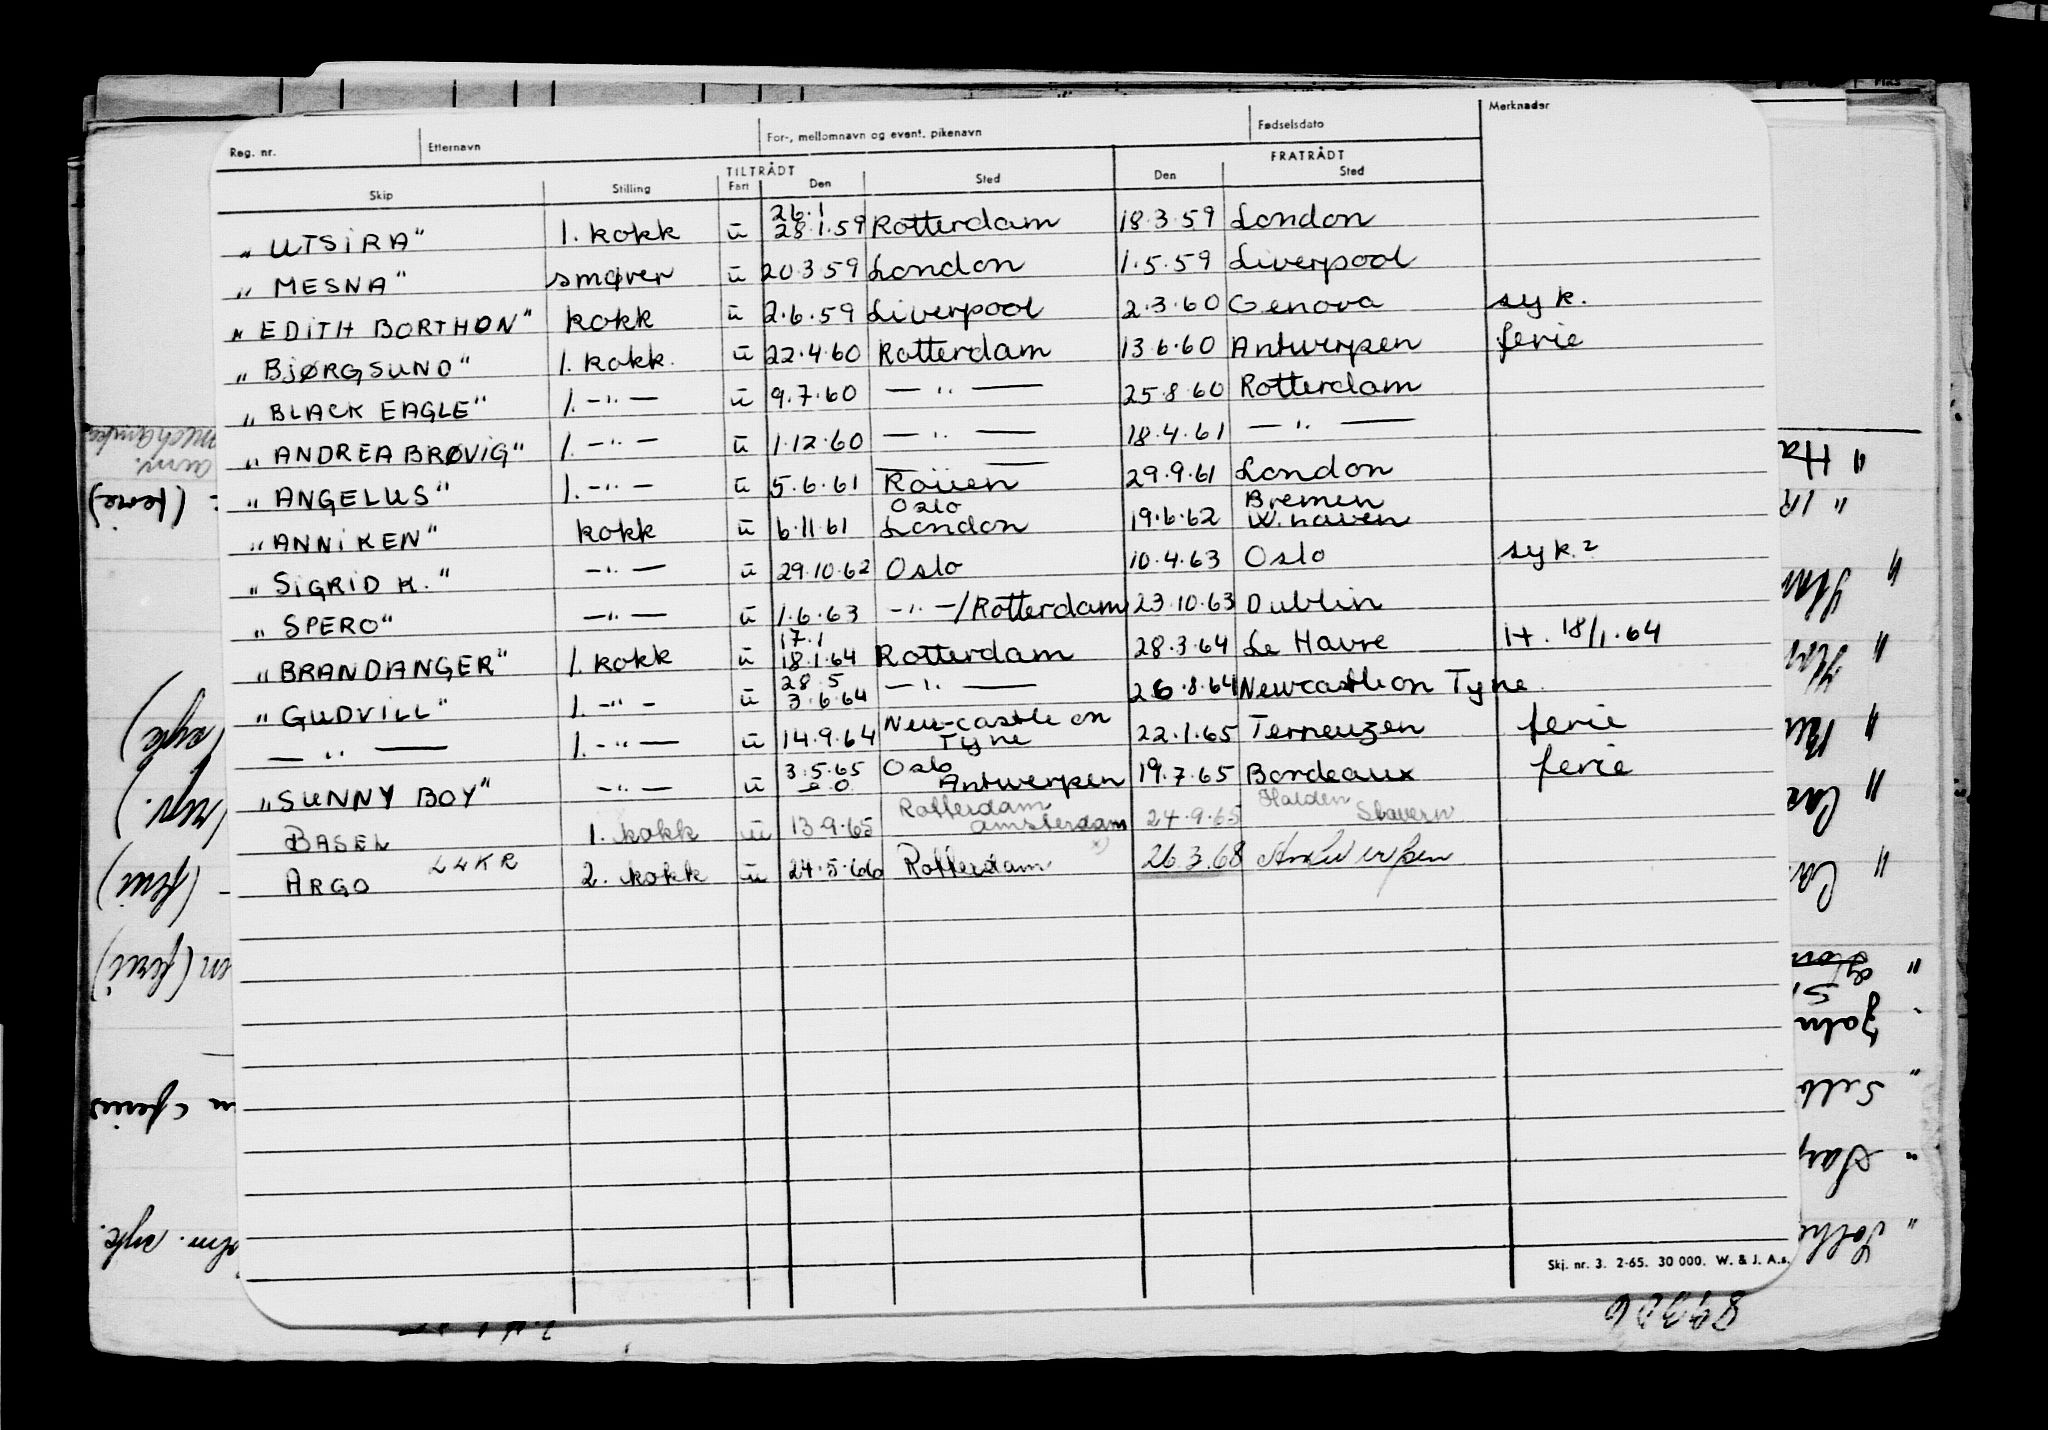 Reg. nr. Etternavn For-, mellomnavn og event. pikenavn Fødselsdato Merknader
TILTRÅDT FRATRÅDT
Skip Stilling Fart Den Sted Den Sted
26.1
„UTSIRA" 1. kokk u 28.1.59 Rotterdam 18.3.59 London
„MESNA" smører u 20.3.59 London 1.5.59 Liverpool
„EDITH BORTHON" kokk u 2.6.59 Liverpool 2.3.60 Genova syk.
„BJØRGSUND" 1. kokk. u 22.4.60 Rotterdam 13.6.60 Antwerpen ferie
„BLACK EAGLE" 1. –"– u 9.7.60 –"– 25.8.60 Rotterdam
„ANDREA BRØVIG" 1. –"– u 1.12.60 –"– 18.4.61 –"–
„ANGELUS" 1. –"– u 5.6.61 Rouen 29.9.61 London
Oslo Bremen
„ANNIKEN" kokk u 6.11.61 London 19.6.62 W. haven
„SIGRID K." –"– u 29.10.62 Oslo 10.4.63 Oslo syk.?
„SPERO" –"– u 1.6.63 –"–/Rotterdam 23.10.63 Dublin
17.1
„BRANDANGER" 1. kokk u 18.1.64 Rotterdam 28.3.64 Le Havre It. 18/1.64
28.5
„GUDVILL" 1. –"– u 3.6.64 –"– 26.8.64 Newcastle on Tyne
–"– 1. –"– u 14.9.64 New-castle on Tyne 22.1.65 Terneuzen ferie
3.5.65 Oslo
„SUNNY BOY" –"– u Antwerpen 19.7.65 Bordeaux ferie
Rotterdam Halden
BASEL 1. kokk u 13.9.65 Amsterdam 24.9.65 Stavern
x)
ARGO LLKR 2. kokk u 24.5.66 Rotterdam 26.3.68 Antwerpen
Skj. nr. 3. 2-65. 30 000. W. & J. A.s.
(ferie)
"
" IR
"
"
"
"
"
John
Selb
89306